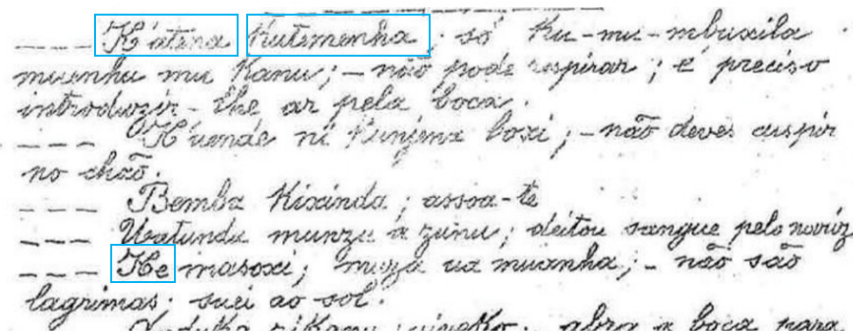 ---- K'atena kutemenha; só ku-mu-mbuxila
muenhu mu kanu; - não pode respirar; é preciso
introduzir-lhe ar pela boca.
---- K'uende ni boxi; - não deves cuspir
no chão.
---- Bemba kixinda; assoa-te
---- Uatunda zunu; deitou sangue pelo nariz
---- Ke masoxi; ua muanha; - não são
lagrimas. suei ao sol.
kikanu abra a boca para